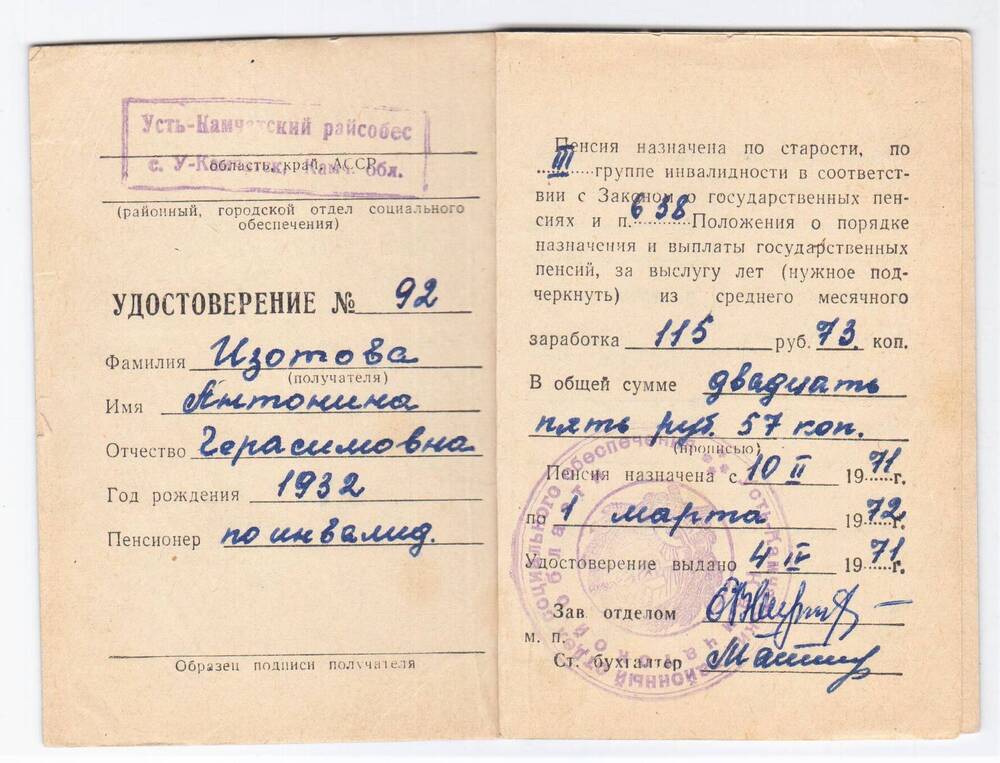 Усть-Камчатский райсобес
область, край, АССР
с. У-Камчатск, Камч. обл.
(районный, городской отдел социального
обеспечения)
УДОСТОВЕРЕНИЕ № 92
Фамилия Изотова
(получателя)
Имя Антонина
Отчество Герасимовна
Год рождения 1932
Пенсионер по инвалид.
Образец подписи получателя
Пенсия назначена по старости, по
III группе инвалидности в соответст-
вии с Законом о государственных пен-
сиях и п. 638 Положения о порядке
назначения и выплаты государственных
пенсий, за выслугу лет (нужное под-
черкнуть) из среднего месячного
заработка 115 руб. 73 коп.
В общей сумме двадцать
пять руб. 57 коп.
(прописью)
Пенсия назначена с 10 II 1971 г.
по 1 марта 1972 г.
Удостоверение выдано 4 IV 1971 г.
Зав отделом
м. п.
Ст. бухгалтер
социального обеспечения